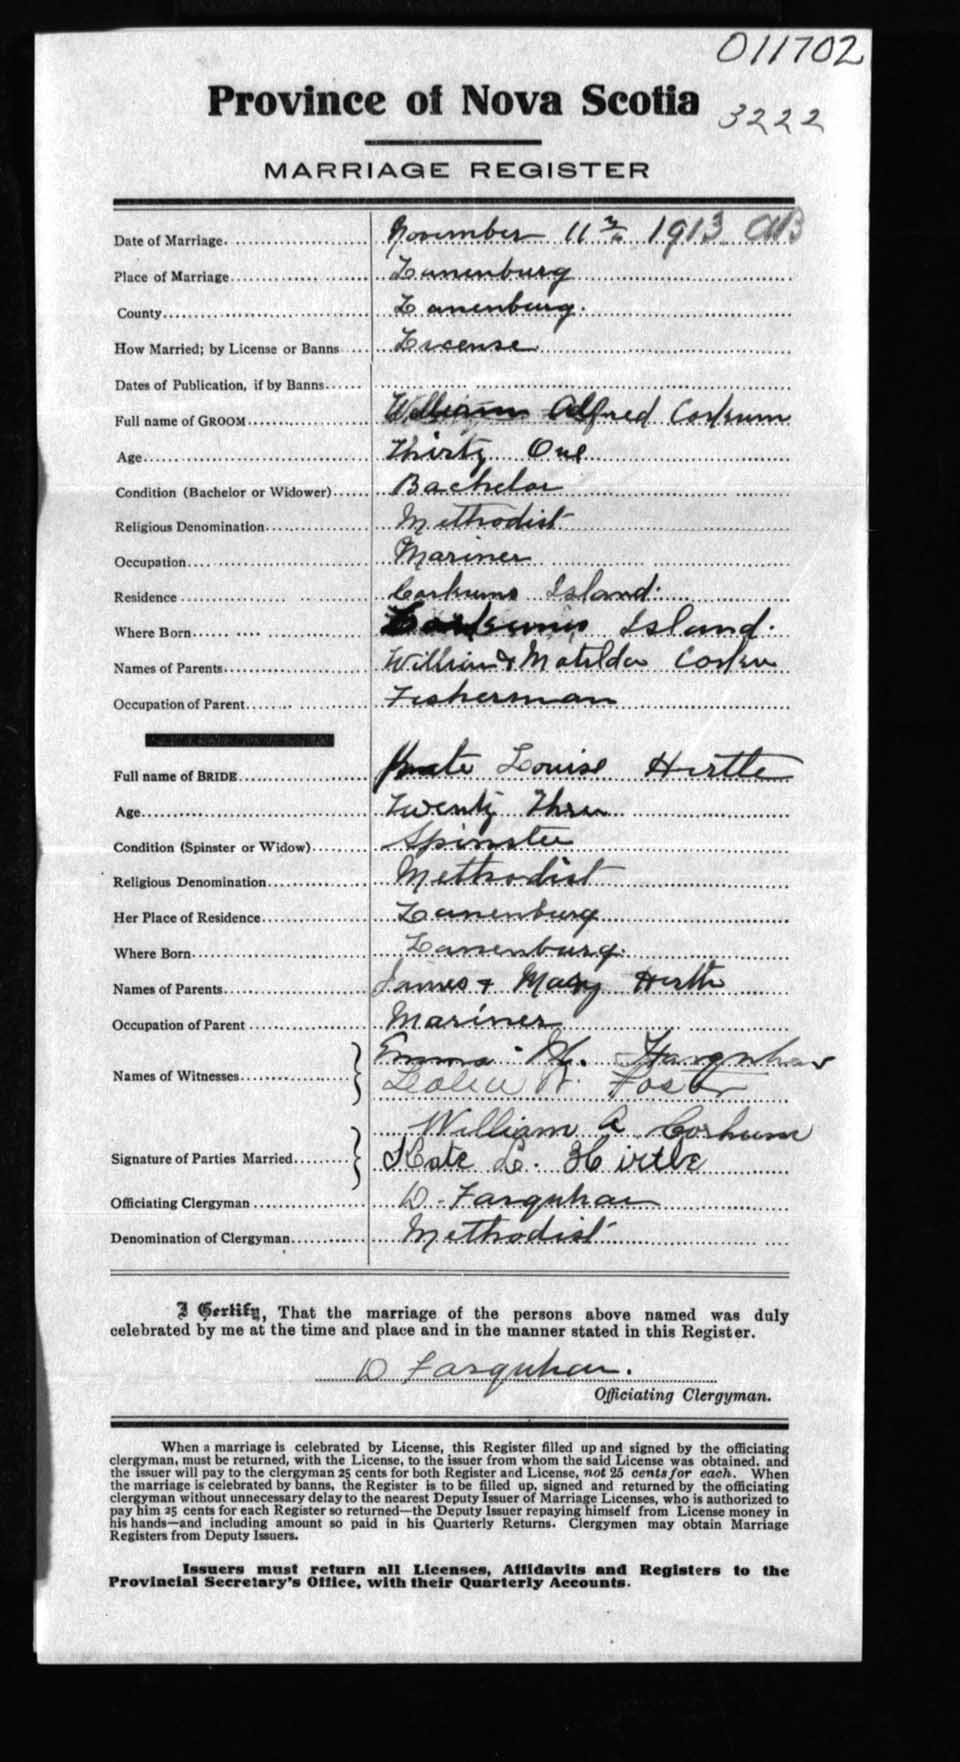 011702
Province of Nova Scotia
3222
MARRIAGE REGISTER
Date of Marriage November 11 1913
Place of Marriage Lunenburg
County Lunenburg.
How Married; by License or Banns License
Dates of Publication, if by Banns
Full name of GROOM William Alfred Corkum
Age Thirty One
Condition (Bachelor or Widower) Bachelor
Religious Denomination Methodist
Occupation Mariner
Residence Corkums Island.
Where Born Corkums Island.
Names of Parents William & Matilda Corkum
Occupation of Parent Fisherman
Full name of BRIDE Kate Louise Hirtle
Age Twenty Three
Condition (Spinster or Widow) Spinster
Religious Denomination Methodist
Her Place of Residence Lunenburg
Where Born Lunenburg.
Names of Parents James & Mary Hirtle
Occupation of Parent Mariner
Names of Witnesses Emma M. Farquhar
W. Foster
Signature of Parties Married William A Corkum
Kate L. Hirtle
Officiating Clergyman D. Farquhar
Denomination of Clergyman Methodist
I Certify, That the marriage of the persons above named was duly
celebrated by me at the time and place and in the manner stated in this Register.
D Farquhar.
Officiating Clergyman.
When a marriage is celebrated by License, this Register filled up and signed by the officiating
clergyman, must be returned, with the License, to the issuer from whom the said License was obtained, and
the issuer will pay to the clergyman 25 cents for both Register and License, not 25 cents for each. When
the marriage is celebrated by banns, the Register is to be filled up, signed and returned by the officiating
clergyman without unnecessary delay to the nearest Deputy Issuer of Marriage Licenses, who is authorized to
pay him 25 cents for each Register so returned—the Deputy Issuer repaying himself from License money in
his hands—and including amount so paid in his Quarterly Returns. Clergymen may obtain Marriage
Registers from Deputy Issuers.
Issuers must return all Licenses, Affidavits and Registers to the
Provincial Secretary's Office, with their Quarterly Accounts.